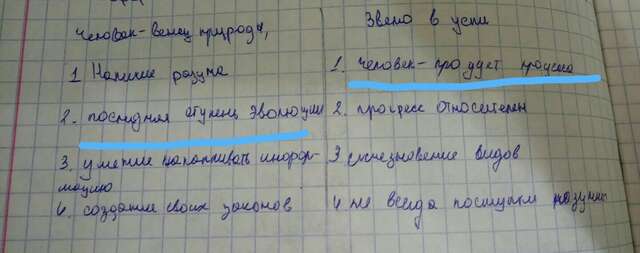 Человек-венец природы,
1 Наличие разума
2. последняя ступень эволюции
3. умение накапливать инфор-
мацию
4. создание своих законов
Звено в цепи
1. Человек-продукт процесса
2. прогресс относителен
3 исчезновение видов
4 не всегда поступки разумны